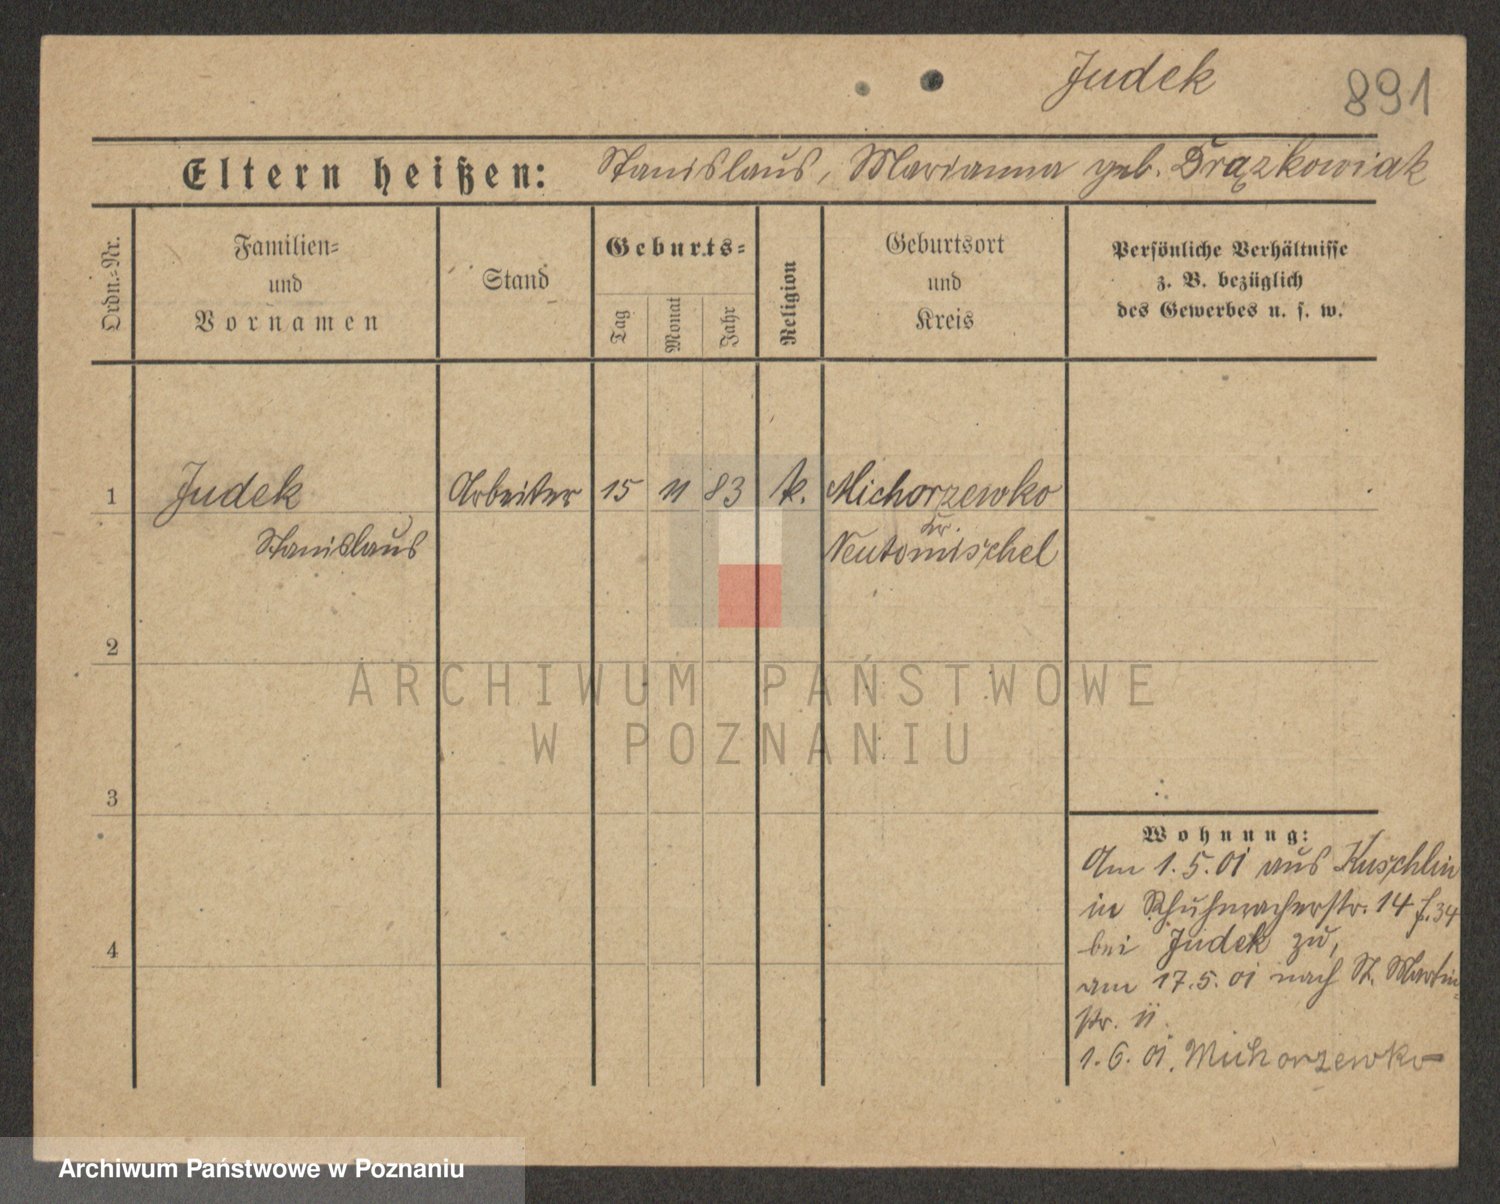 Judek
891
Eltern heißen: Stanislaus, Marianna geb. Drążkowiak
Ordn.-Nr.
Familien-
und
Vornamen
Stand
Geburts-
Tag
Monat
Jahr
Religion
Geburtsort
und
Kreis
Persönliche Verhältnisse
z. B. bezüglich
des Gewerbes u. s. w.
1 Judek Arbeiter 15 11 83 k. Michorzewko
Kr.
Stanislaus Neutomischel
2
3
4
Wohnung:
Am 1.5.01 aus Kuschlin
in Schuhmacherstr. 14 34
bei Judek zu,
am 17.5.01 nach St. Martin-
str. 11.
1.6.01. Michorzewko
ARCHIWUM PAŃSTWOWE
W POZNANIU
Archiwum Państwowe w Poznaniu